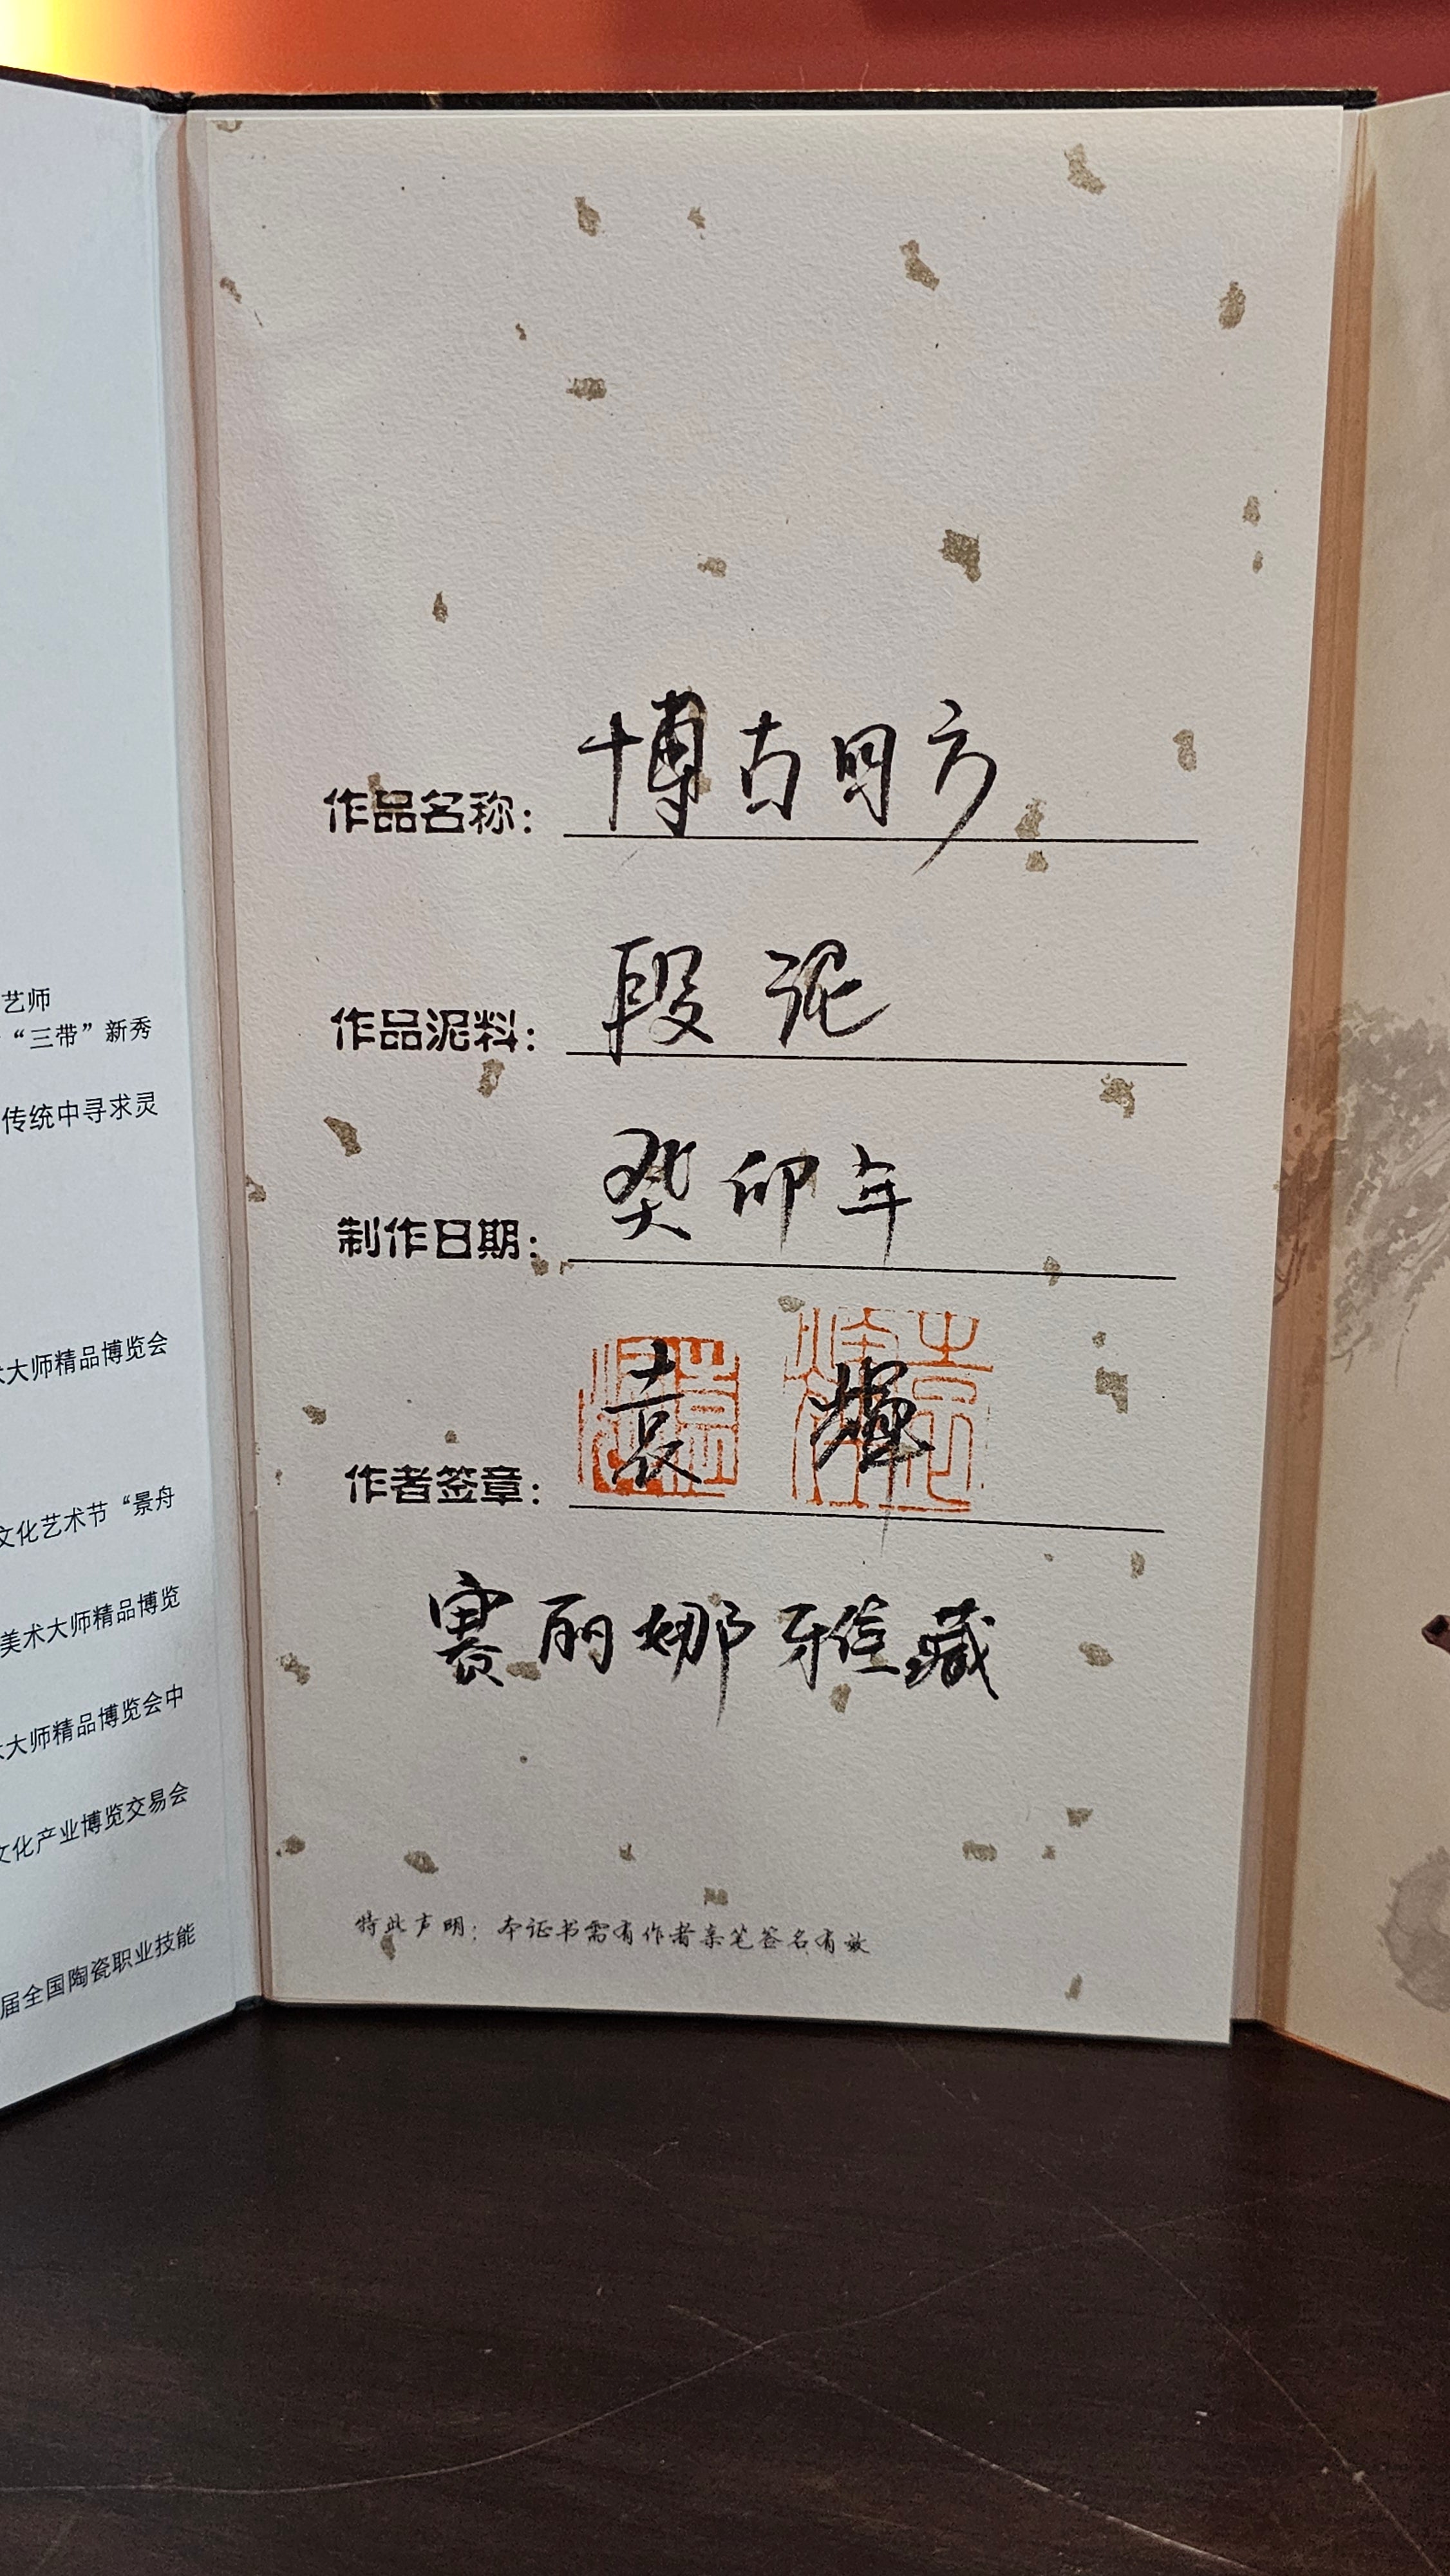 艺师
“三带”新秀
传统中寻求灵
术大师精品博览会
文化艺术节“景舟
美术大师精品博览
术大师精品博览会中
文化产业博览交易会
届全国陶瓷职业技能
作品名称：博古四方
作品泥料：段泥
制作日期：癸卯年
作者签章：袁輝
赛丽娜雅藏
特此声明：本证书需有作者亲笔签名有效